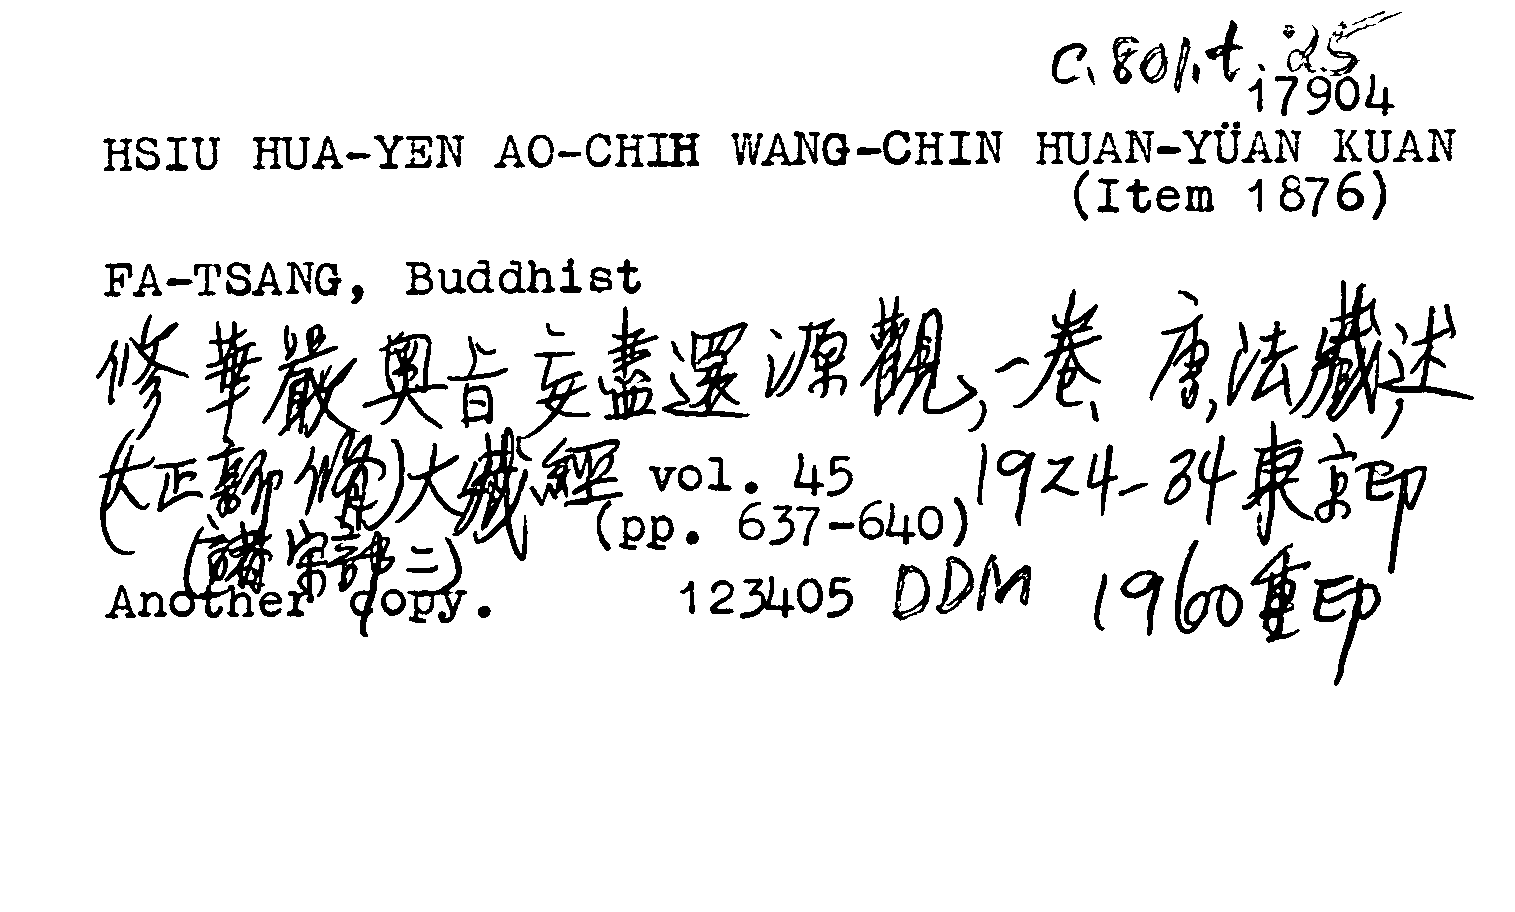 C. 801. t. 25
17904
HSIU HUA-YEN AO-CHIH WANG-CHIN HUAN-YÜAN KUAN
(Item 1876)
FA-TSANG, Buddhist
修華嚴奧旨妄盡還源觀, 一卷, 唐, 法藏, 述,
(大正新修)大藏經 vol. 45 1924-34東京印
(諸宗部二) (pp. 637-640)
Another copy. 123405 DDM 1960重印